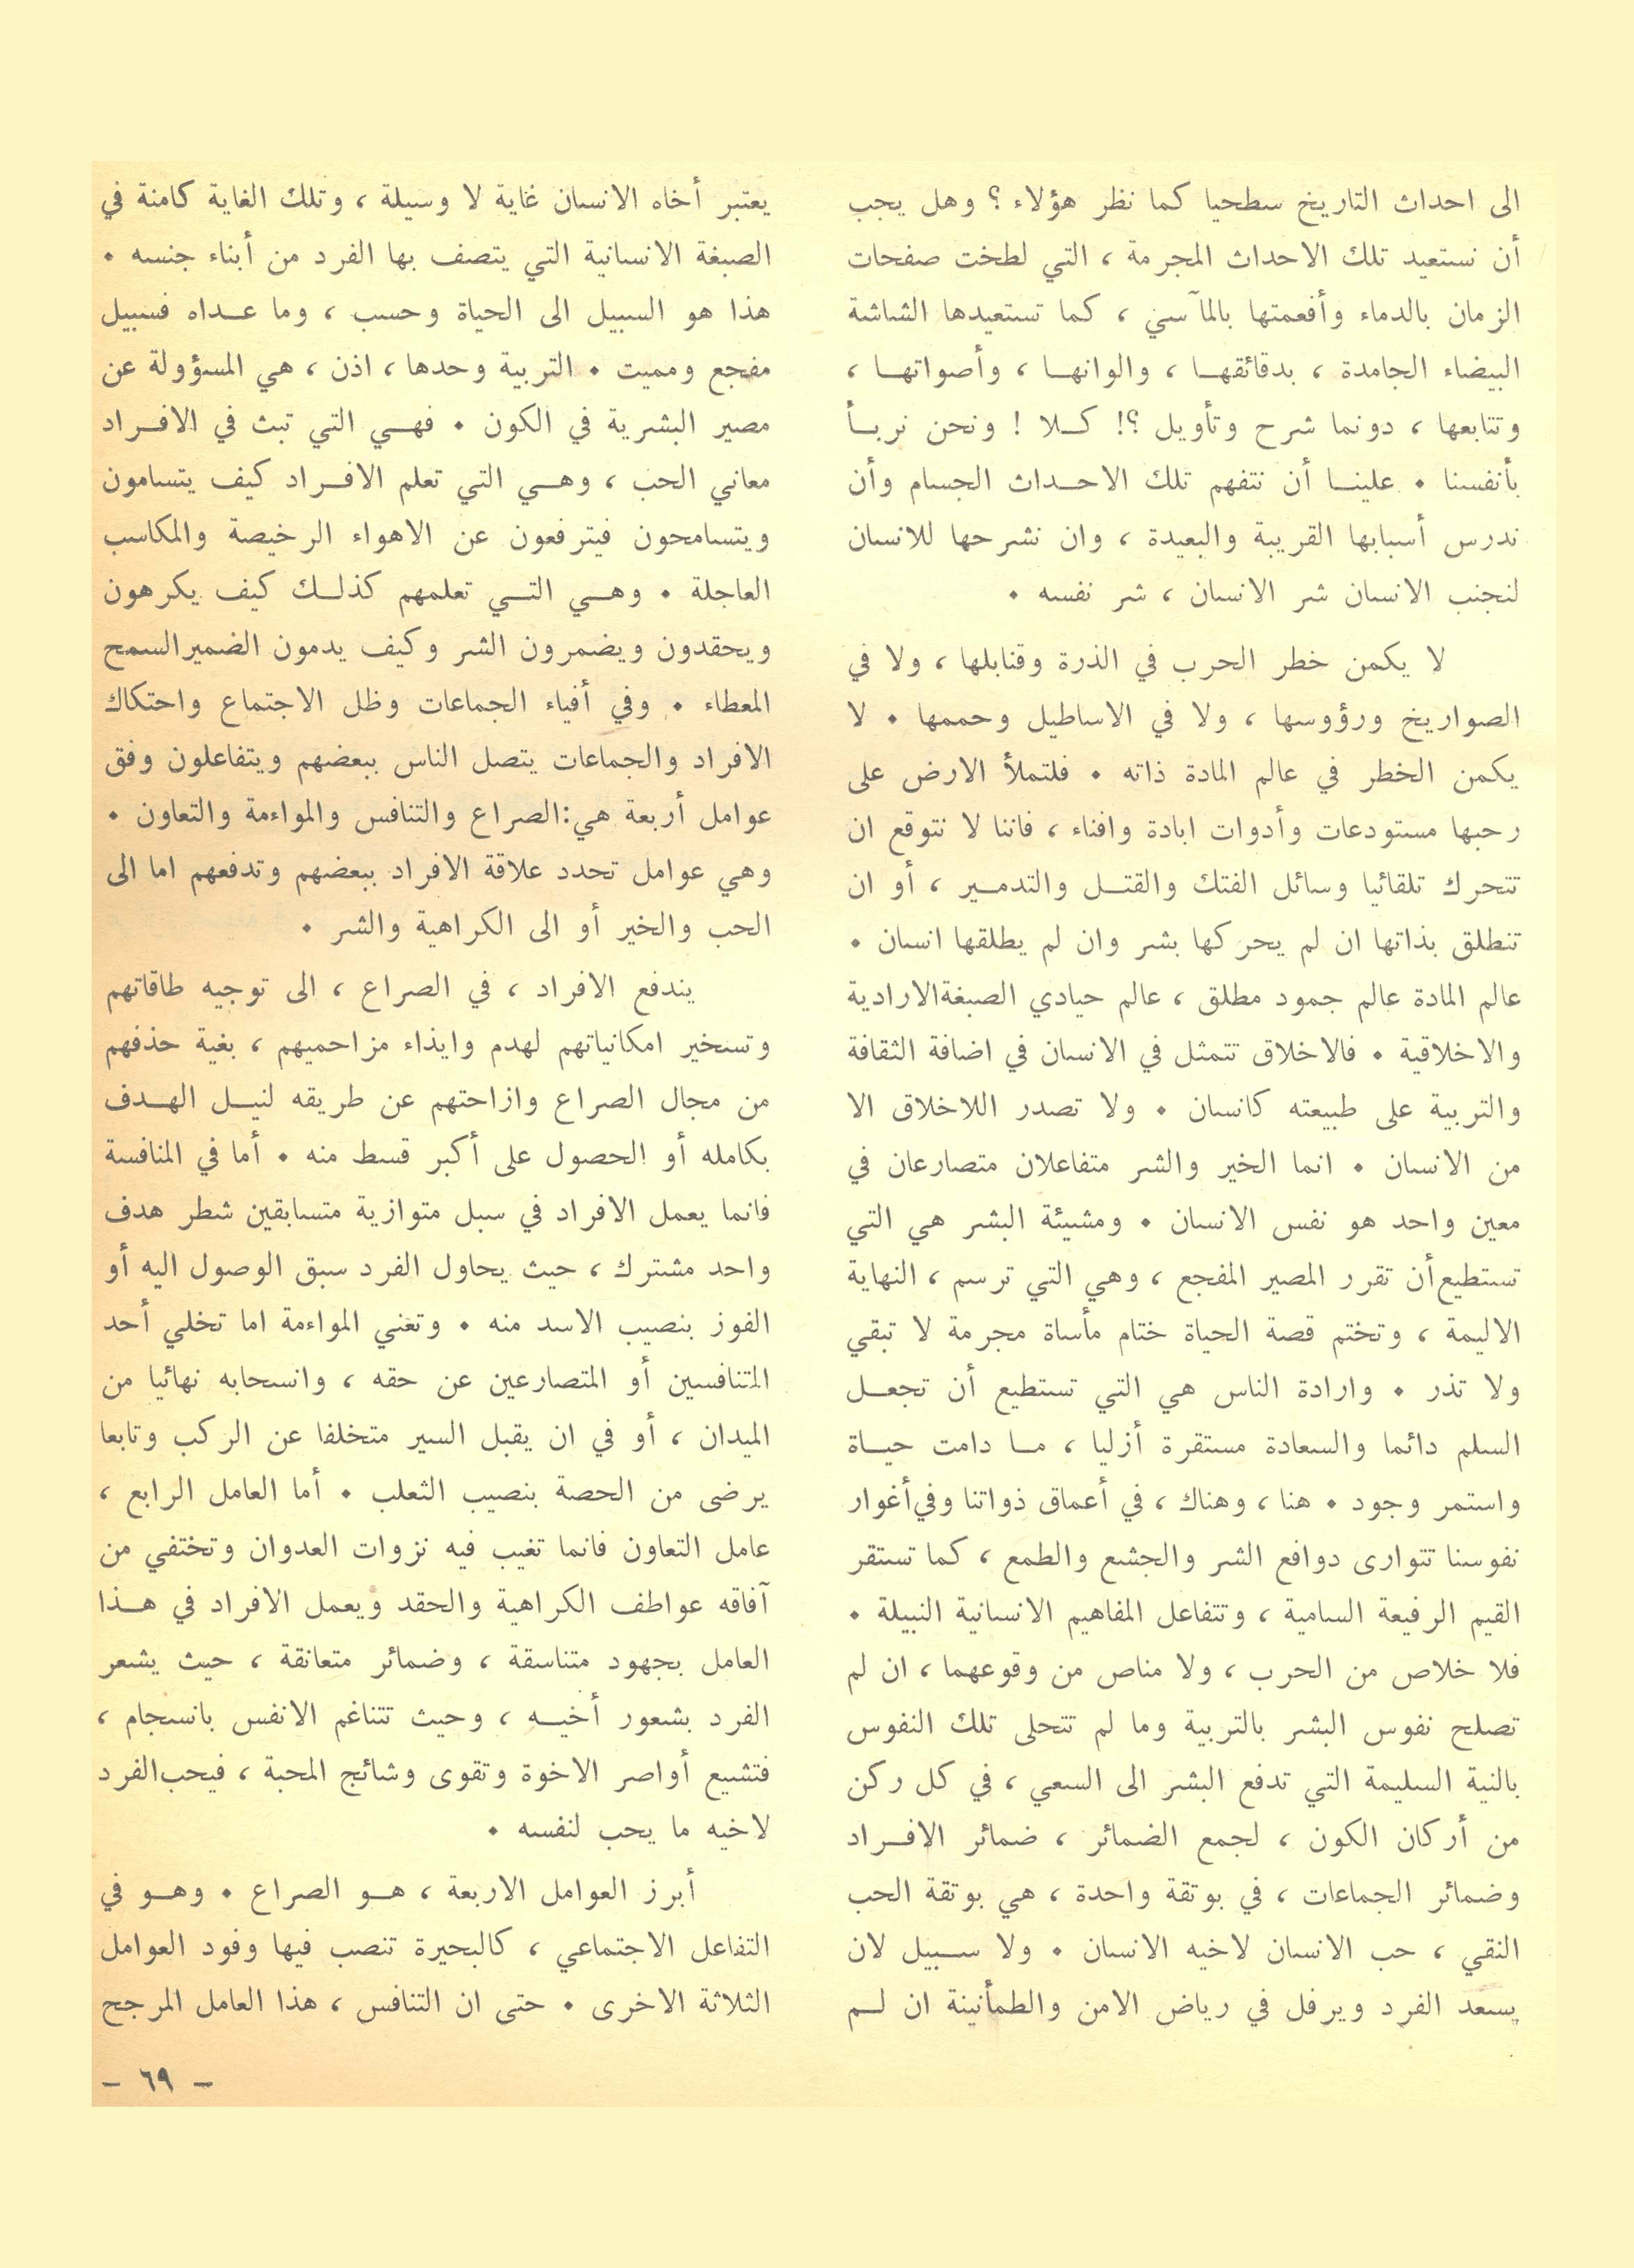 الى احداث التاريخ سطحيا كما نظر هؤلاء ؟ وهل يجب
أن نستعيد تلك الاحداث المجرمة ، التي لطخت صفحات
الزمان بالدماء وأفعمتها بالمآسي ، كما تستعيدها الشاشة
البيضاء الجامدة ، بدقائقهـا ، والوانهـا ، وأصواتهـا ،
وتتابعها ، دونما شرح وتأويل ؟! كـلا ! ونحن نربـأ
بأنفسنا ٠ علينـا أن نتفهم تلك الاحـداث الجسام وأن
ندرس أسبابها القريبة والبعيدة ، وان نشرحها للانسان
لنجنب الانسان شر الانسان ، شر نفسه ٠
لا يكمن خطر الحرب في الذرة وقنابلها ، ولا في
الصواريخ ورؤوسها ، ولا في الاساطيل وحممها ٠ لا
يكمن الخطر في عالم المادة ذاته ٠ فلتملأ الارض على
رحبها مستودعات وأدوات ابادة وافناء ، فاننا لا نتوقع ان
تتحرك تلقائيا وسائل الفتك والقتـل والتدمـير ، أو ان
تنطلق بذاتها ان لم يحركها بشر وان لم يطلقها انسان ٠
عالم المادة عالم جمود مطلق ، عالم حيادي الصبغةالارادية
والاخلاقية ٠ فالاخلاق تتمثل في الانسان في اضافة الثقافة
والتربية على طبيعته كانسان ٠ ولا تصدر اللاخلاق الا
من الانسان ٠ انما الخير والشر متفاعلان متصارعان في
معين واحد هو نفس الانسان ٠ ومشيئة البشر هي التي
تستطيع أن تقرر المصير المفجع ، وهي التي ترسم ، النهاية
الاليمة ، وتختم قصة الحياة ختام مأساة مجرمة لا تبقي
ولا تذر ٠ وارادة الناس هي التي تستطيع أن تجعـل
السلم دائما والسعادة مستقرة أزليا ، مـا دامت حيـاة
واستمر وجود ٠ هنا ، وهناك ، في أعماق ذواتنا وفي أغوار
نفوسنا تتوارى دوافع الشر والجشع والطمع ، كما تستقر
القيم الرفيعة السامية ، وتتفاعل المفاهيم الانسانية النبيلة ٠
فلا خلاص من الحرب ، ولا مناص من وقوعهما ، ان لم
تصلح نفوس البشر بالتربية وما لم تتحلى تلك النفوس
بالنية السليمة التي تدفع البشر الى السعي ، في كل ركن
من أركان الكون ، لجمع الضمائر ، ضمائر الافـراد
وضمائر الجماعات ، في بوتقة واحدة ، هي بوتقة الحب
النقي ، حب الانسان لاخيه الانسان ٠ ولا سـبيل لان
يسعد الفرد ويرفل في رياض الامن والطمأنينة ان لـم
يعتبر أخاه الانسان غاية لا وسيلة ، وتلك الغاية كامنة في
الصبغة الانسانية التي يتصف بها الفرد من أبناء جنسه ٠
هذا هو السبيل الى الحياة وحسب ، وما عـداه فسبيل
مفجع ومميت ٠ التربية وحدها ، اذن ، هي المسؤولة عن
مصير البشرية في الكون ٠ فهـي التي تبث في الافـراد
معاني الحب ، وهـي التي تعلم الافـراد كيف يتسامون
ويتسامحون فيترفعون عن الاهواء الرخيصة والمكاسب
العاجلة ٠ وهـي التـي تعلمهم كذلـك كيف يكرهون
ويحقدون ويضمرون الشر وكيف يدمون الضميرالسمح
المعطاء ٠ وفي أفياء الجماعات وظل الاجتماع واحتكاك
الافراد والجماعات يتصل الناس ببعضهم ويتفاعلون وفق
عوامل أربعة هي:الصراع والتنافس والمواءمة والتعاون ٠
وهي عوامل تحدد علاقة الافراد ببعضهم وتدفعهم اما الى
الحب والخير أو الى الكراهية والشر ٠
يندفع الافراد ، في الصراع ، الى توجيه طاقاتهم
وتسخير امكانياتهم لهدم وايذاء مزاحميهم ، بغية حذفهم
من مجال الصراع وازاحتهم عن طريقه لنيـل الهـدف
بكامله أو الحصول على أكبر قسط منه ٠ أما في المنافسة
فانما يعمل الافراد في سبل متوازية متسابقين شطر هدف
واحد مشترك ، حيث يحاول الفرد سبق الوصول اليه أو
الفوز بنصيب الاسد منه ٠ وتغني المواءمة اما تخلي أحد
المتنافسين أو المتصارعين عن حقه ، وانسحابه نهائيا من
الميدان ، أو في ان يقبل السير متخلفا عن الركب وتابعا
يرضى من الحصة بنصيب الثعلب ٠ أما العامل الرابع ،
عامل التعاون فانما تغيب فيه نزوات العدوان وتختفي من
آفاقه عواطف الكراهية والحقد ويعمل الافراد في هـذا
العامل بجهود متناسقة ، وضمائر متعانقة ، حيث يشعر
الفرد بشعور أخيـه ، وحيث تتناغم الانفس بانسجام ،
فتشيع أواصر الاخوة وتقوى وشائج المحبة ، فيحب الفرد
لاخيه ما يحب لنفسه ٠
أبرز العوامل الاربعة ، هـو الصراع ٠ وهـو في
التفاعل الاجتماعي ، كالبحيرة تنصب فيها وفود العوامل
الثلاثة الاخرى ٠ حتى ان التنافس ، هذا العامل المرجح
– ٦٩ –